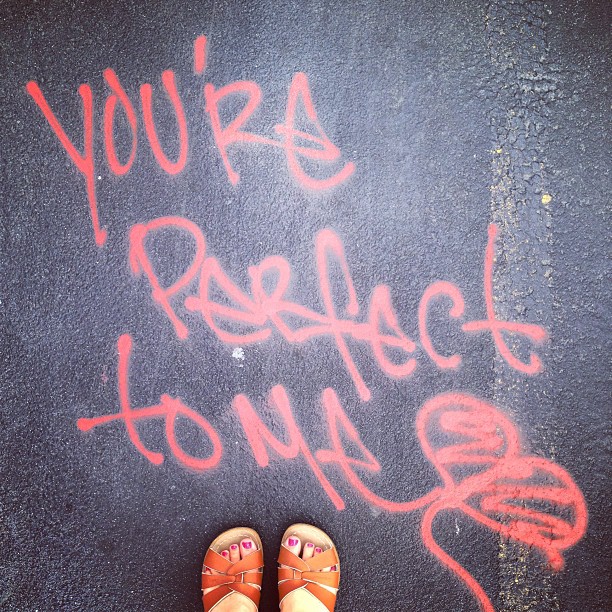 You're
Perfect
to Me